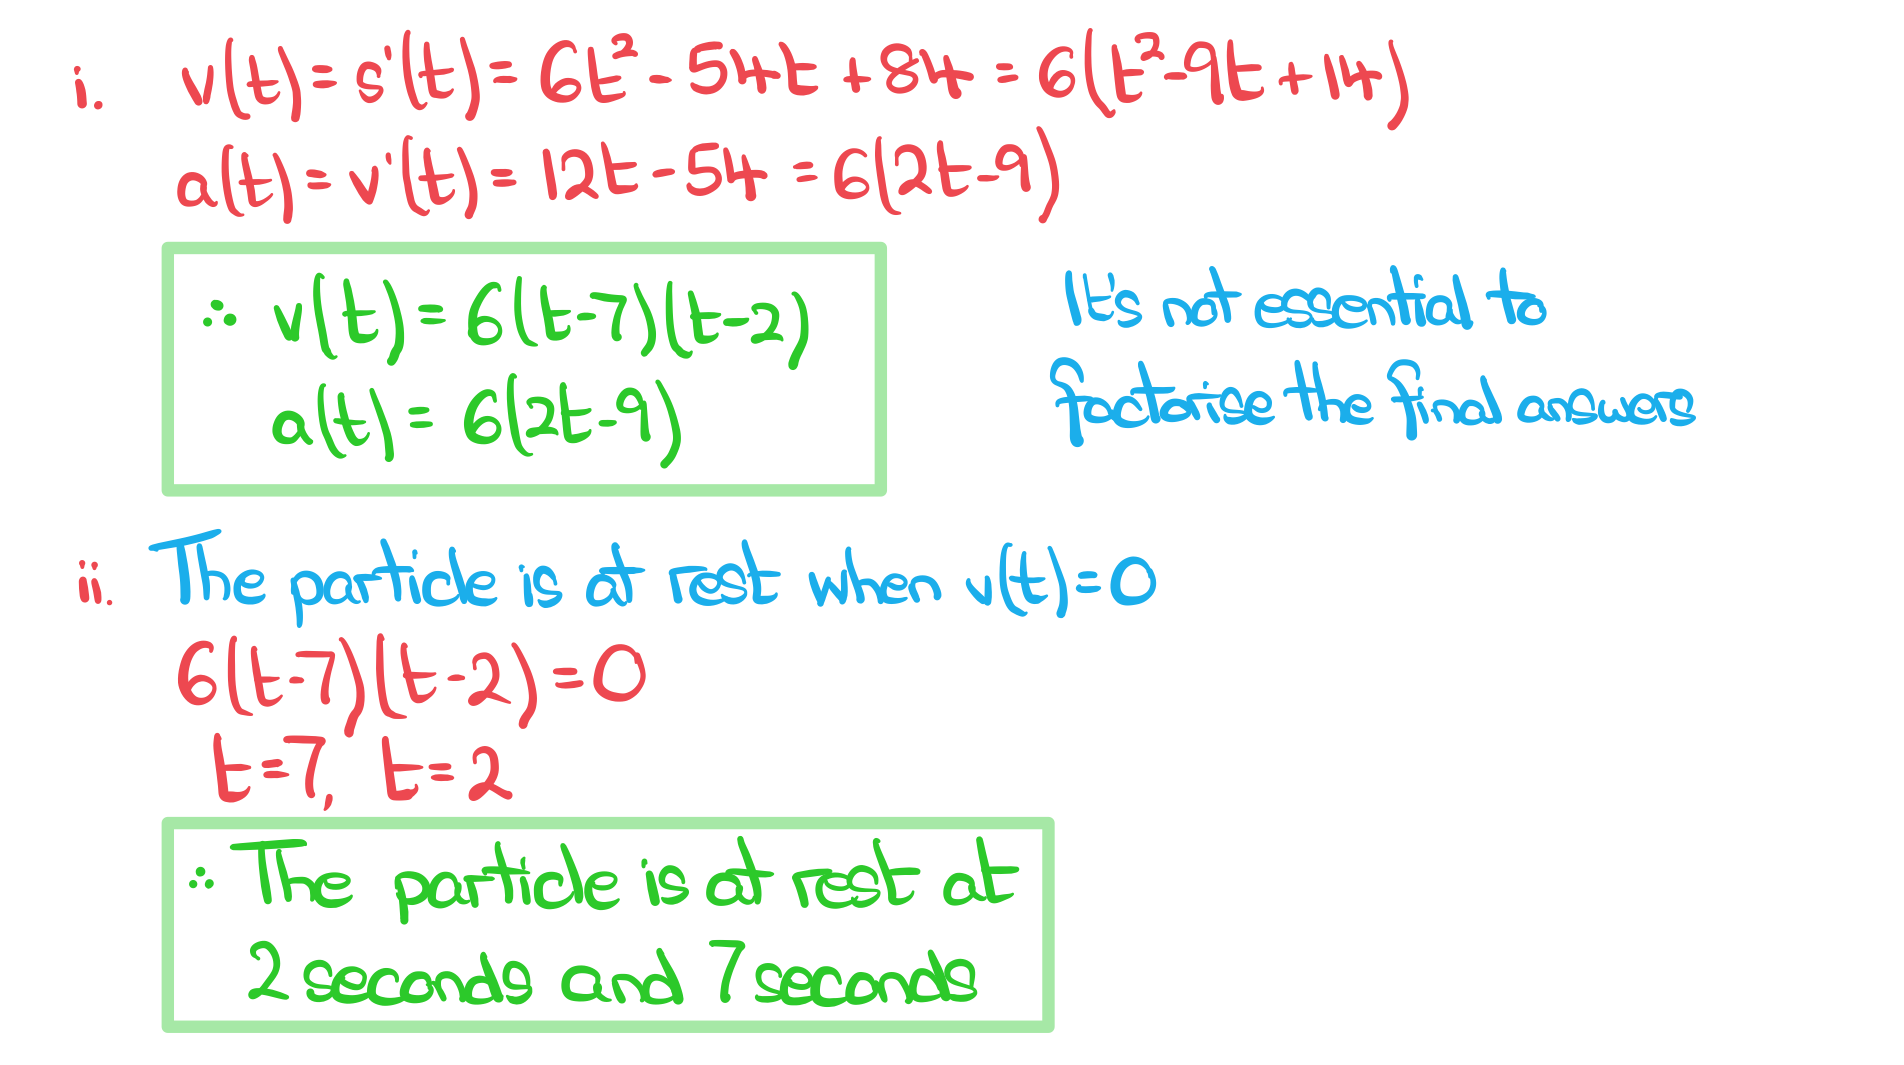 i. v(t) = s'(t) = 6t² - 54t + 84 = 6(t² - 9t + 14)
a(t) = v'(t) = 12t - 54 = 6(2t - 9)
∴ v(t) = 6(t - 7)(t - 2)
a(t) = 6(2t - 9)
It's not essential to
factorise the final answers
ii. The particle is at rest when v(t) = 0
6(t - 7)(t - 2) = 0
t = 7, t = 2
∴ The particle is at rest at
2 seconds and 7 seconds